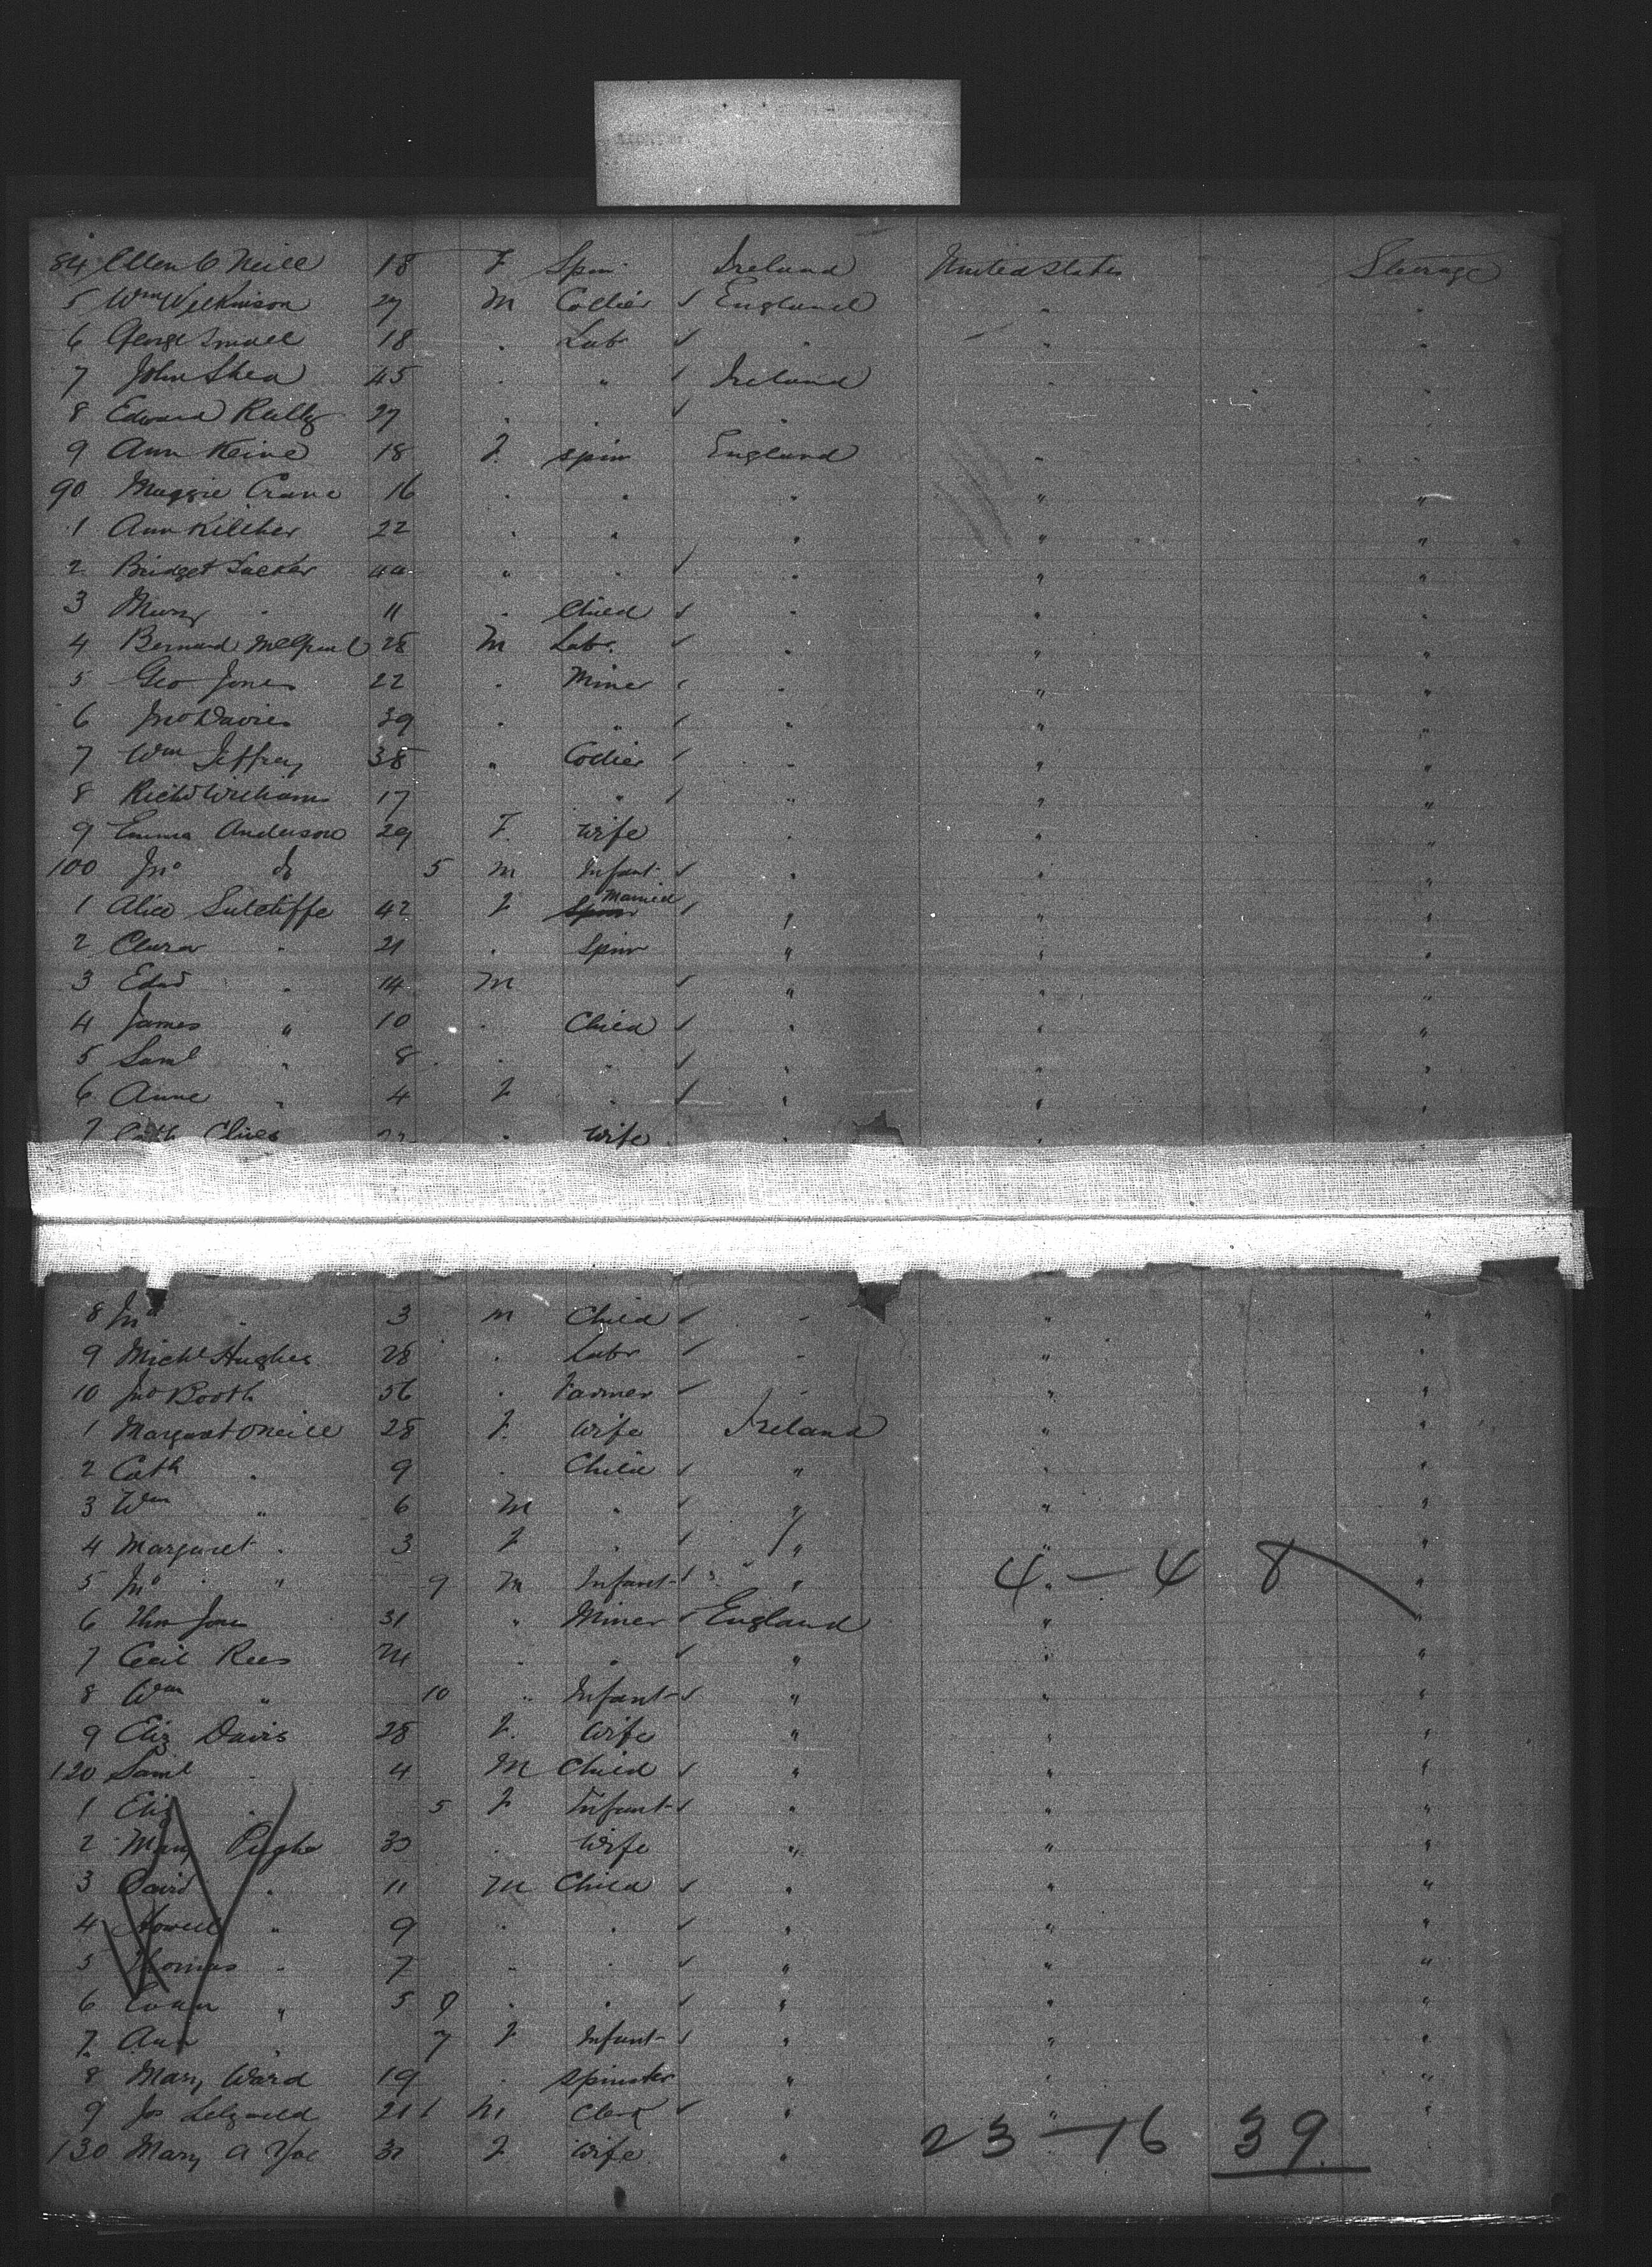 84 Ellen O Neill 18 F Spin Ireland United States Steerage
5 Wm Wilkinson 27 M Collier ✓ England "
6 George Small 18 " Labr ✓ " " "
7 John Shea 45 " " ✓ Ireland " "
8 Edward Reilly 27 " " ✓ " "
9 Ann Keine 18 F. Spin England " "
90 Maggie Crane 16 " " " " "
1 Ann Kilcher 22 " " " " "
2 Bridget 44 " " ✓ " " "
3 Mary " 11 " Child ✓ " " "
4 Bernard 28 M Labr. ✓ " " "
5 Geo Jones 22 " Miner ✓ " " "
6 Jno Davies 39 " " ✓ " " "
7 Wm Jeffrey 38 " Collier ✓ " " "
8 Richd Williams 17 " ✓ " " "
9 Emma Anderson 29 F. Wife " " "
100 Jno do 5 M Infant ✓ " " "
1 Alice Sutcliffe 42 F Spin Married ✓ " " "
2 Clara " 21 " Spin " " "
3 Edwd " 14 M ✓ " " "
4 James " 10 " Child ✓ " " "
5 Saml " 8 " " ✓ " " "
6 Anne " 4 F " ✓ " " "
7 Cath Clives " Wife " " "
8 Jno " 3 M Child ✓ " " "
9 Michl Hughes 28 " Labr ✓ " " "
10 Jno Booth 56 " Farmer ✓ " " "
1 Margaret O Neill 28 F. Wife Ireland " "
2 Cath " 9 " Child ✓ " " "
3 Wm " 6 M " ✓ " " "
4 Margaret " 3 F " ✓ " " "
5 Jno " 9 M Infant ✓ " " 4 - 4 8 "
6 Thos Jones 31 " Miner ✓ England " "
7 Cecil Rees 24 " " ✓ " " "
8 Wm " 10 " Infant ✓ " " "
9 Eliz Davis 28 F. Wife " " "
120 Saml " 4 M Child ✓ " " "
1 Eliz " 5 F Infant ✓ " " "
2 Mary Pugh 33 " Wife " " "
3 David " 11 M Child ✓ " " "
4 Howell " 9 " " ✓ " " "
5 Thomas " 7 " " ✓ " " "
6 Evan " 5 " " ✓ " " "
7. Ann " 7 F Infant ✓ " " "
8 Mary Ward 19 " Spinster " " "
9 Jos 21 M Clerk ✓ " " "
130 Mary A 31 F Wife " 23 - 16 39